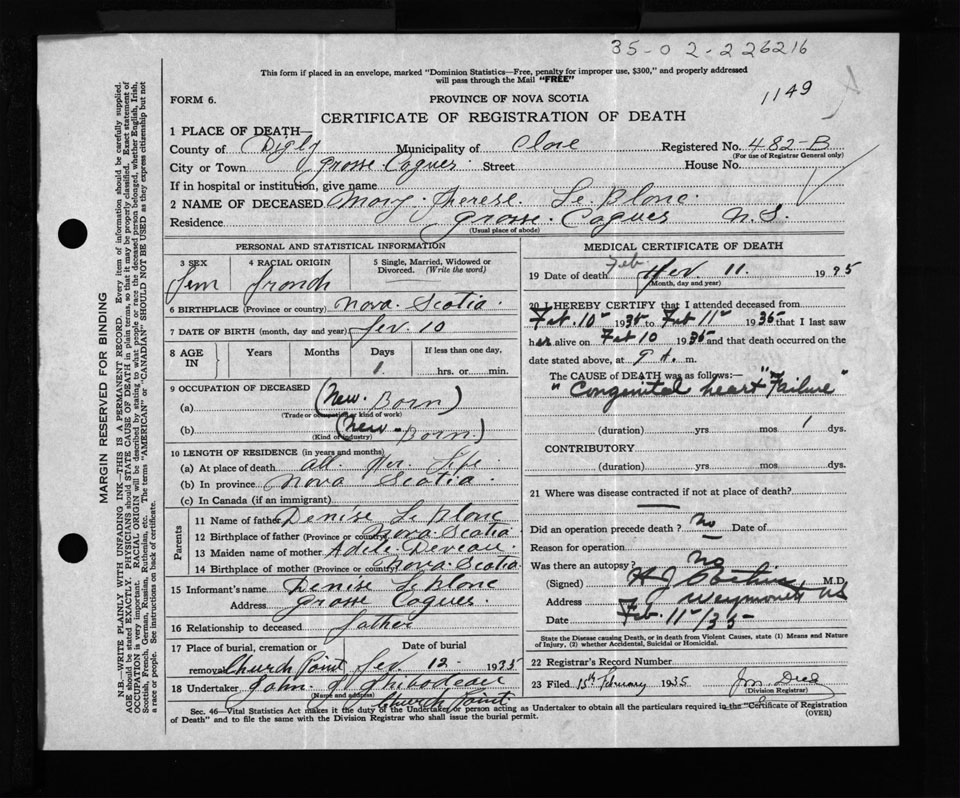 35-02-226216
This form if placed in an envelope, marked "Dominion Statistics—Free, penalty for improper use, $300," and properly addressed
will pass through the Mail "FREE"
1149
FORM 6.
PROVINCE OF NOVA SCOTIA
CERTIFICATE OF REGISTRATION OF DEATH
1 PLACE OF DEATH—
County of Digby Municipality of Clare Registered No. 482-B
(For use of Registrar General only)
City or Town Grosse Coques Street House No.
If in hospital or institution, give name
2 NAME OF DECEASED Mary Therese Le Blanc
Residence Grosse Coques N.S.
(Usual place of abode)
PERSONAL AND STATISTICAL INFORMATION
3 SEX 4 RACIAL ORIGIN 5 Single, Married, Widowed or
Divorced. (Write the word)
Fem French
6 BIRTHPLACE (Province or country) Nova Scotia
7 DATE OF BIRTH (month, day and year) Fev. 10
8 AGE IN Years Months Days If less than one day,
1 hrs. or min.
9 OCCUPATION OF DECEASED
(a) (New Born)
(Trade or occupation or kind of work)
(b) (New-Born)
(Kind of industry)
10 LENGTH OF RESIDENCE (in years and months)
(a) At place of death all her Life
(b) In province Nova Scotia
(c) In Canada (if an immigrant)
Parents
11 Name of father Denise Le Blanc
12 Birthplace of father (Province or country) Nova Scotia
13 Maiden name of mother Adele Deveau
14 Birthplace of mother (Province or country) Nova Scotia
15 Informant's name Denise Le Blanc
Address Grosse Coques
16 Relationship to deceased father
17 Place of burial, cremation or Date of burial
removal Church Point Fev. 12 1935
18 Undertaker John Thibodeau
(Name and address) Church Point
MEDICAL CERTIFICATE OF DEATH
19 Date of death Feb. Fev. 11 1935
(Month, day and year)
20 I HEREBY CERTIFY that I attended deceased from
Feb. 10th 1935 to Feb 11th 1935 that I last saw
her alive on Feb 10 1935 and that death occurred on the
date stated above, at m.
The CAUSE of DEATH was as follows:—
"Congenital heart "Failure"
(duration) yrs mos 1 dys.
CONTRIBUTORY
(duration) yrs. mos. dys.
21 Where was disease contracted if not at place of death?
Did an operation precede death? No Date of
Reason for operation
Was there an autopsy? No
(Signed) H J M.D.
Address Weymouth NS
Date Feb. 11th/35
State the Disease causing Death, or in death from Violent Causes, state (1) Means and Nature
of Injury, (2) whether Accidental, Suicidal or Homicidal.
22 Registrar's Record Number
23 Filed 15th February 1935
(Division Registrar)
Sec. 46—Vital Statistics Act makes it the duty of the Undertaker or person acting as Undertaker to obtain all the particulars required in the "Certificate of Registration
of Death" and to file the same with the Division Registrar who shall issue the burial permit.
(OVER)
MARGIN RESERVED FOR BINDING
N.B.—WRITE PLAINLY WITH UNFADING INK—THIS IS A PERMANENT RECORD. Every item of information should be carefully supplied.
AGE should be stated EXACTLY. PHYSICIANS should STATE CAUSE OF DEATH in plain terms, so that it may be properly classified. Exact statement of
OCCUPATION is very important. RACIAL ORIGIN will be described by stating to what people or race the deceased person belonged, whether English, Irish,
Scottish, French, German, Russian, Ruthenian, etc. The terms "AMERICAN" or "CANADIAN" SHOULD NOT BE USED as they express citizenship but not
a race or people. See instructions on back of certificate.